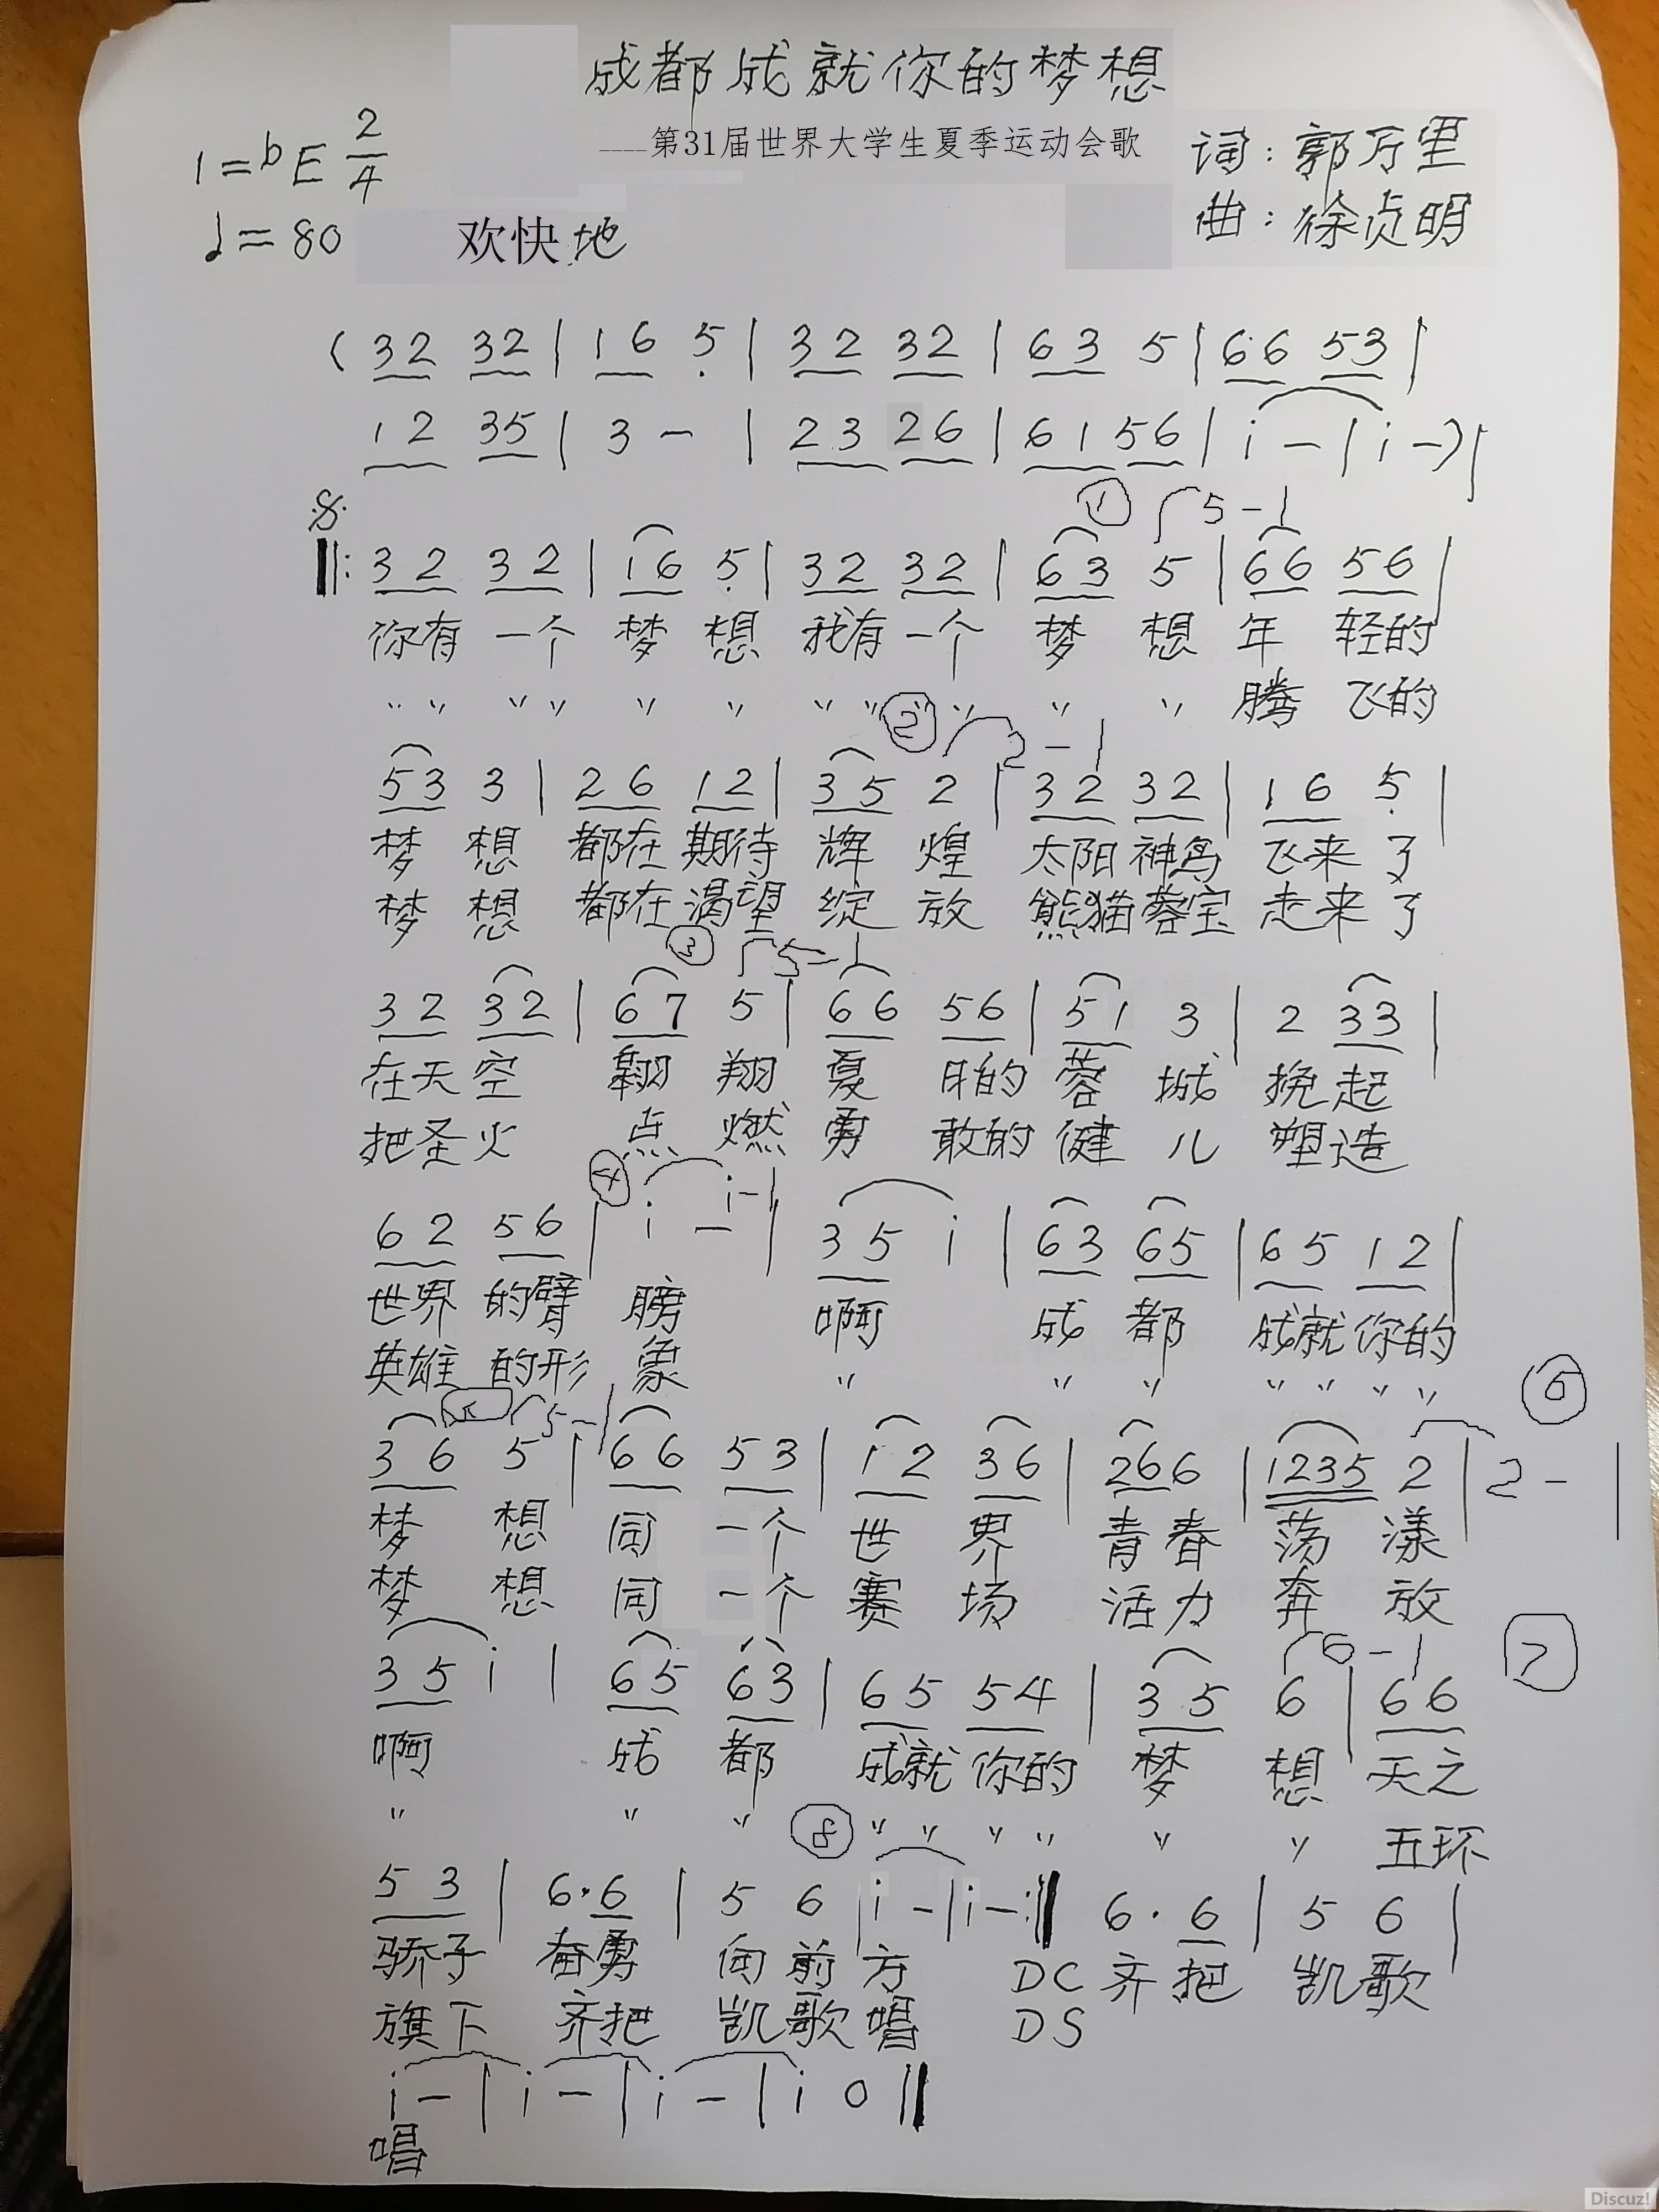 成都成就你的梦想
----第31届世界大学生夏季运动会歌
1=bE 2/4
词:郭万里
♩=80 欢快地
曲:徐贞明
(32 32|16 5|32 32|63 5|66 53|
12 35|3 -|23 26|61 56|i -|i -)|
① 5-|
𝄋
‖:32 32|16 5|32 32|63 5|66 56|
你有 一个 梦 想 我有 一个 梦 想 年 轻的
" " " " " " " " " " " " 腾 飞的
② 2-|
53 3|26 12|35 2|32 32|16 5|
梦 想 都在 期待 辉 煌 太阳 神鸟 飞来 了
梦 想 都在 渴望 绽 放 熊猫 蓉宝 走来 了
③ 5-|
32 32|67 5|66 56|51 3|2 33|
在天 空 翱 翔 夏 日的 蓉 城 挽 起
把圣 火 点 燃 勇 敢的 健 儿 塑 造
④ i-|
62 56|i -|35 i|63 65|65 12|
世界 的臂 膀 啊 成 都 成就 你的
英雄 的形 象 " " " " " " "
⑤ 5-| ⑥
36 5|66 53|12 36|266|1235 2|2-|
梦 想 同 一个 世 界 青 春 荡 漾
梦 想 同 一个 赛 场 活 力 奔 放
6-| ⑦
35 i|65 63|65 54|35 6|66
啊 成 都 成就 你的 梦 想 天之
" " " " " " " " " 五环
⑧
53|6·6|5 6|i -|i -:‖ 6·6|5 6|
骄子 奋勇 向 前 方 DC 齐 把 凯 歌
旗下 齐把 凯 歌 唱 DS
i -|i -|i -|i 0‖
唱
Discuz!